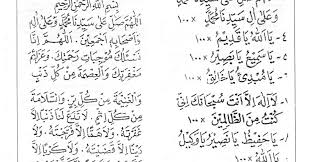 وَعَلَى آلِ سَيِّدِنَا مُحَمَّدٍ ١٠٠×
٤- يَا اَللهُ يَا قَدِيْمُ ١٠٠×
٥- يَا سَمِيْعُ يَا بَصِيْرُ ١٠٠×
٦- يَا مُبْدِئُ يَا خَالِقُ ١٠٠×
لَا إِلَهَ إِلَّا أَنْتَ سُبْحَانَكَ إِنِّى
كُنْتُ مِنَ الظَّالِمِيْنَ ١٠٠×
يَا حَفِيْظُ يَا نَصِيْرُ يَا وَكِيْلُ
يَا اَللهُ ١٠٠×
بِسْمِ اللهِ الرَّحْمَنِ الرَّحِيْمِ
اَللّٰهُمَّ صَلِّ عَلَى سَيِّدِنَا مُحَمَّدٍ وَعَلَى آلِهِ
وَأَصْحَابِهِ أَجْمَعِيْنَ. اَللّٰهُمَّ إِنَّا
نَسْأَلُكَ مُوْجِبَاتِ رَحْمَتِكَ وَعَزَائِمَ
مَغْفِرَتِكَ وَالْعِصْمَةَ مِنْ كُلِّ ذَنْبٍ
وَالْغَنِيْمَةَ مِنْ كُلِّ بِرٍّ وَالسَّلَامَةَ
مِنْ كُلِّ إِثْمٍ. لَا تَدَعْ لَنَا ذَنْبًا إِلَّا
غَفَرْتَهُ وَلَا هَمًّا إِلَّا فَرَّجْتَهُ وَلَا